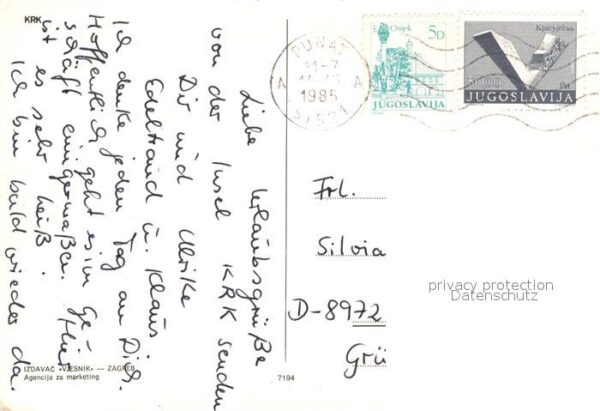 KRK
Liebe Urlaubsgrüße
von der Insel KRK senden
Dir und Ulrike
Edeltraud u. Klaus.
Ich denke jeden Tag an Dich.
Hoffentlich geht es im Ge-
schäft einigermaßen. Hier
ist es sehr heiß.
Ich bin bald wieder da.
IZDAVAČ »VJESNIK« — ZAGREB
Agencija za marketing
7194
PUNAT
11-7
1985
A A
51521
Osijek
50
JUGOSLAVIJA
Kragujevac
5000
JUGOSLAVIJA
Frl.
Silvia
D-8972
Grü
privacy protection
Datenschutz